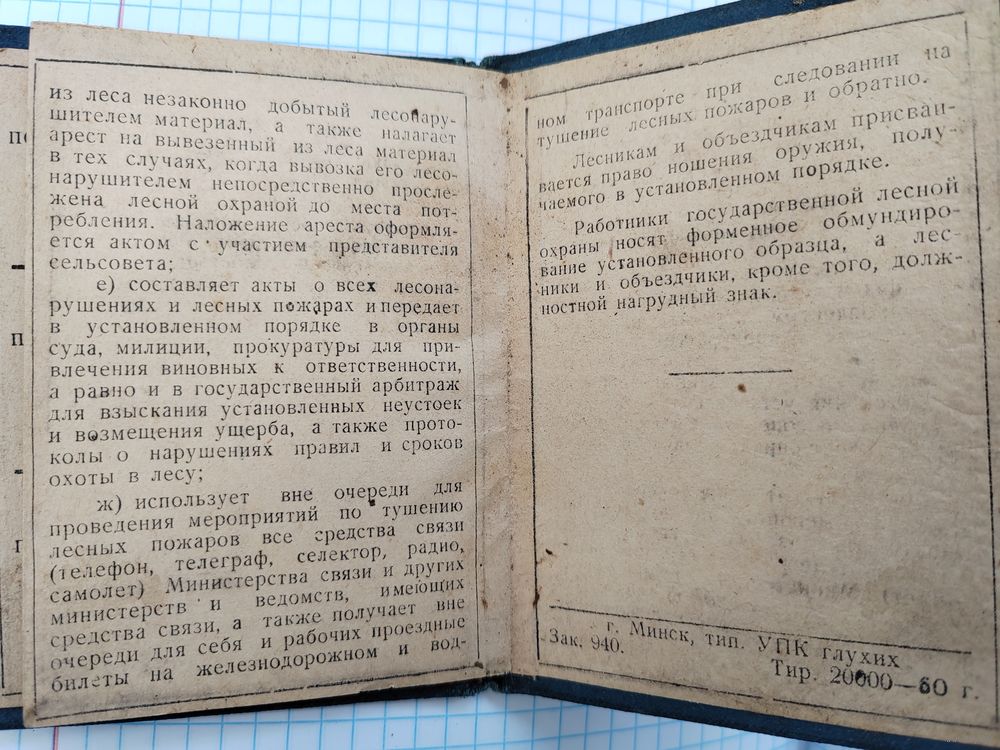 из леса незаконно добытый лесонару-
шителем материал, а также налагает
арест на вывезенный из леса материал
в тех случаях, когда вывозка его лесо-
нарушителем непосредственно просле-
жена лесной охраной до места пот-
ребления. Наложение ареста оформля-
ется актом с участием представителя
сельсовета;
е) составляет акты о всех лесона-
рушениях и лесных пожарах и передает
в установленном порядке в органы
суда, милиции, прокуратуры для при-
влечения виновных к ответственности,
а равно и в государственный арбитраж
для взыскания установленных неустоек
и возмещения ущерба, а также прото-
колы о нарушениях правил и сроков
охоты в лесу;
ж) использует вне очереди для
проведения мероприятий по тушению
лесных пожаров все средства связи
(телефон, телеграф, селектор, радио,
самолет) Министерства связи и других
министерств и ведомств, имеющих
средства связи, а также получает вне
очереди для себя и рабочих проездные
билеты на железнодорожном и вод-
ном транспорте при следовании на
тушение лесных пожаров и обратно.
Лесникам и объездчикам присваи-
вается право ношения оружия, полу-
чаемого в установленном порядке.
Работники государственной лесной
охраны носят форменное обмундиро-
вание установленного образца, а лес-
ники и объездчики, кроме того, долж-
ностной нагрудный знак.
г. Минск, тип. УПК глухих
Зак. 940.
Тир. 20000—60 г.